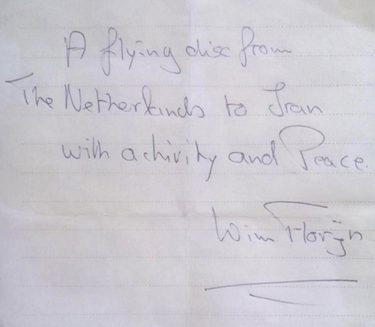 A flying disc from
The Netherlands to Iran
with activity and Peace.
Wim Florijn